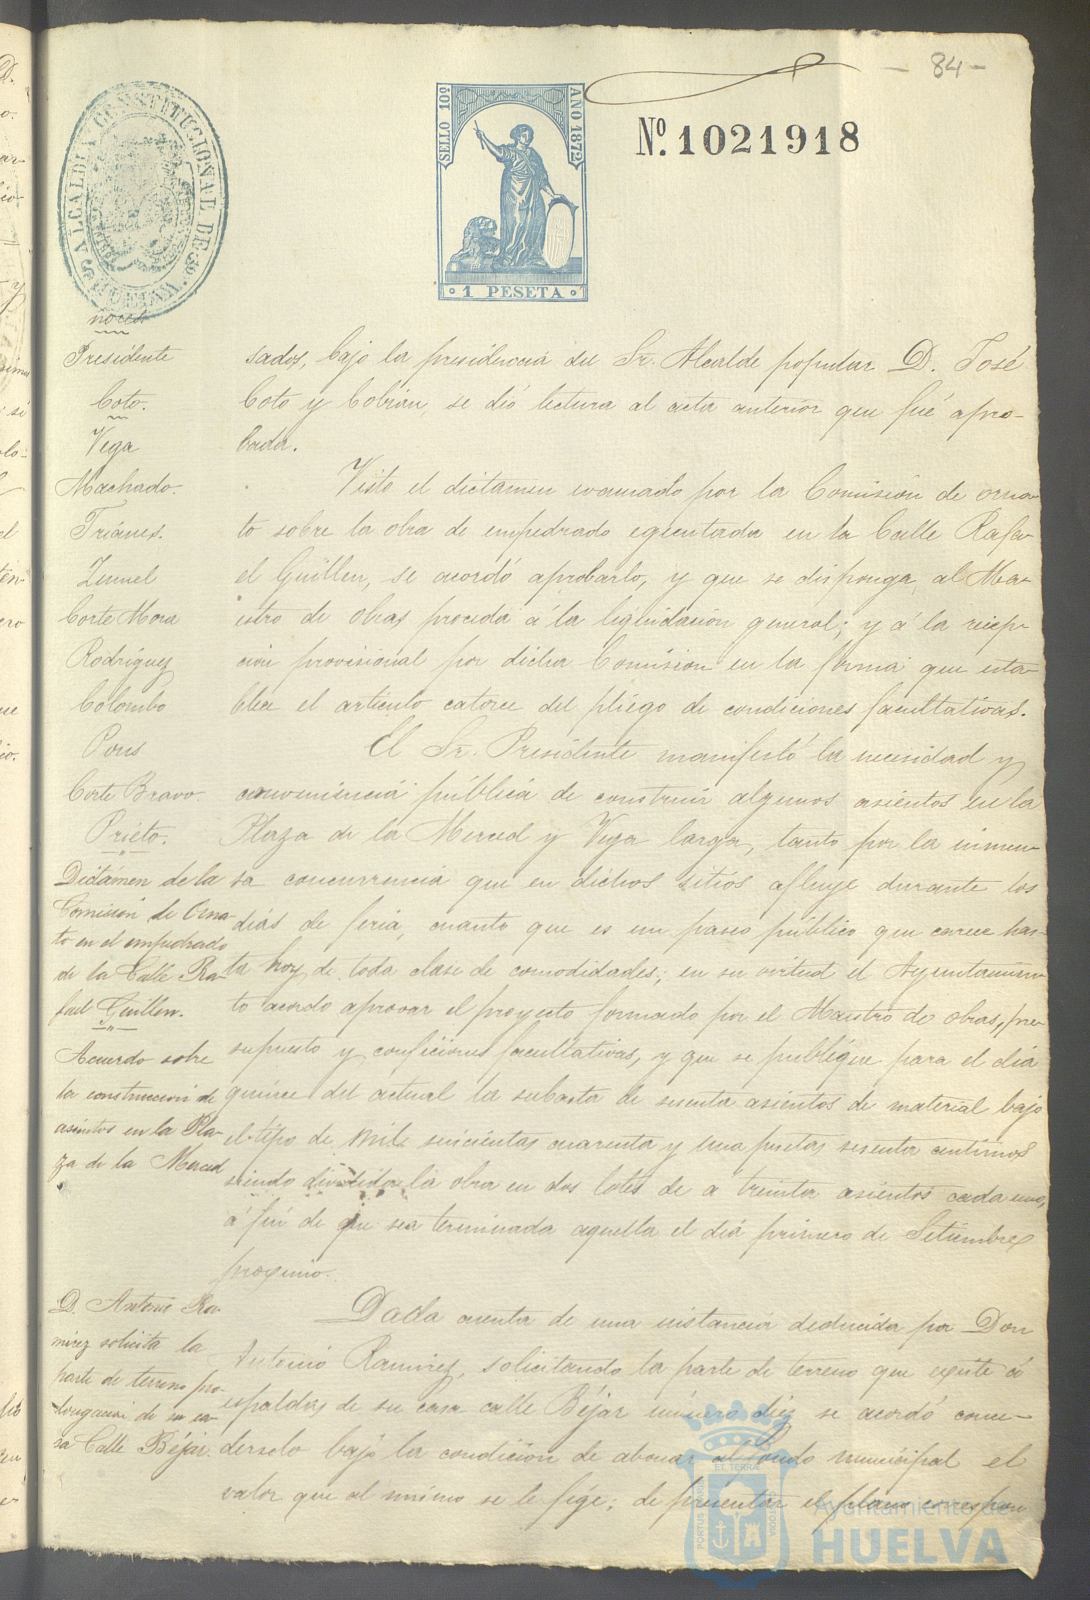 - 84 -
ALCALDIA CONSTITUCIONAL DE HUELVA
SELLO 10º
AÑO 1872
1 PESETA
Nº. 1021918
nores
Presidente
Coto.
Vega
Machado.
Triánes.
Zunuel
Corte Mora
Rodriguez
Colombo
Pons
Corte Bravo.
Prieto.
Dictámen de la
Comisión de Orna-
to en el empedrado
de la Calle Ra-
fael Guillen.
Acuerdo sobre
la construccion de
asientos en la Pla-
za de la Merced
D. Antonio Ra-
mirez solicita la
parte de terreno pro-
longacion de su ca-
sa Calle Béjar.
sados, bajo la presidencia del Sr. Alcalde popular D. José
Coto y Cobián, se dió lectura al acta anterior que fué apro-
bada.
Visto el dictamen evacuado por la Comisión de orna-
to sobre la obra de empedrado egecutada en la Calle Rafa-
el Guillen, se acordó aprobarlo, y que se disponga, al Ma-
estro de obras proceda á la liquidacion general; y á la recep-
cion provisional por dicha Comision en la forma que esta-
blece el articulo catorce del pliego de condiciones facultativas.
El Sr. Presidente manifestó la necesidad y
conveniencia pública de construir algunos asientos en la
Plaza de la Merced y Vega larga, tanto por la inmen-
sa concurrencia que en dichos sitios afluye durante los
dias de feria, cuanto que es un paseo público que carece has-
ta hoy de toda clase de comodidades; en su virtud el Ayuntamien-
to acordo aprovar el proyecto formado por el Maestro de obras, pre-
supuesto y condiciones facultativas, y que se publique para el dia
quince del actual la subasta de sesenta asientos de material bajo
el tipo de mil seiscientas cuarenta y una pesetas sesenta centimos
siendo dividida la obra en dos lotes de a treinta asientos cada uno,
á fin de que sea terminada aquella el dia primero de Setiembre
proximo.
Dada cuenta de una instancia deducida por Don
Antonio Ramirez, solicitando la parte de terreno que existe á
espaldas de su casa calle Béjar número diez se acordó conce-
derselo bajo la condicion de abonar al fondo municipal el
valor que al mismo se le fije; de presentar el plano correspon
EL TERRA
PORTUS MARIS
CUSTODIA
Ayuntamiento de
HUELVA